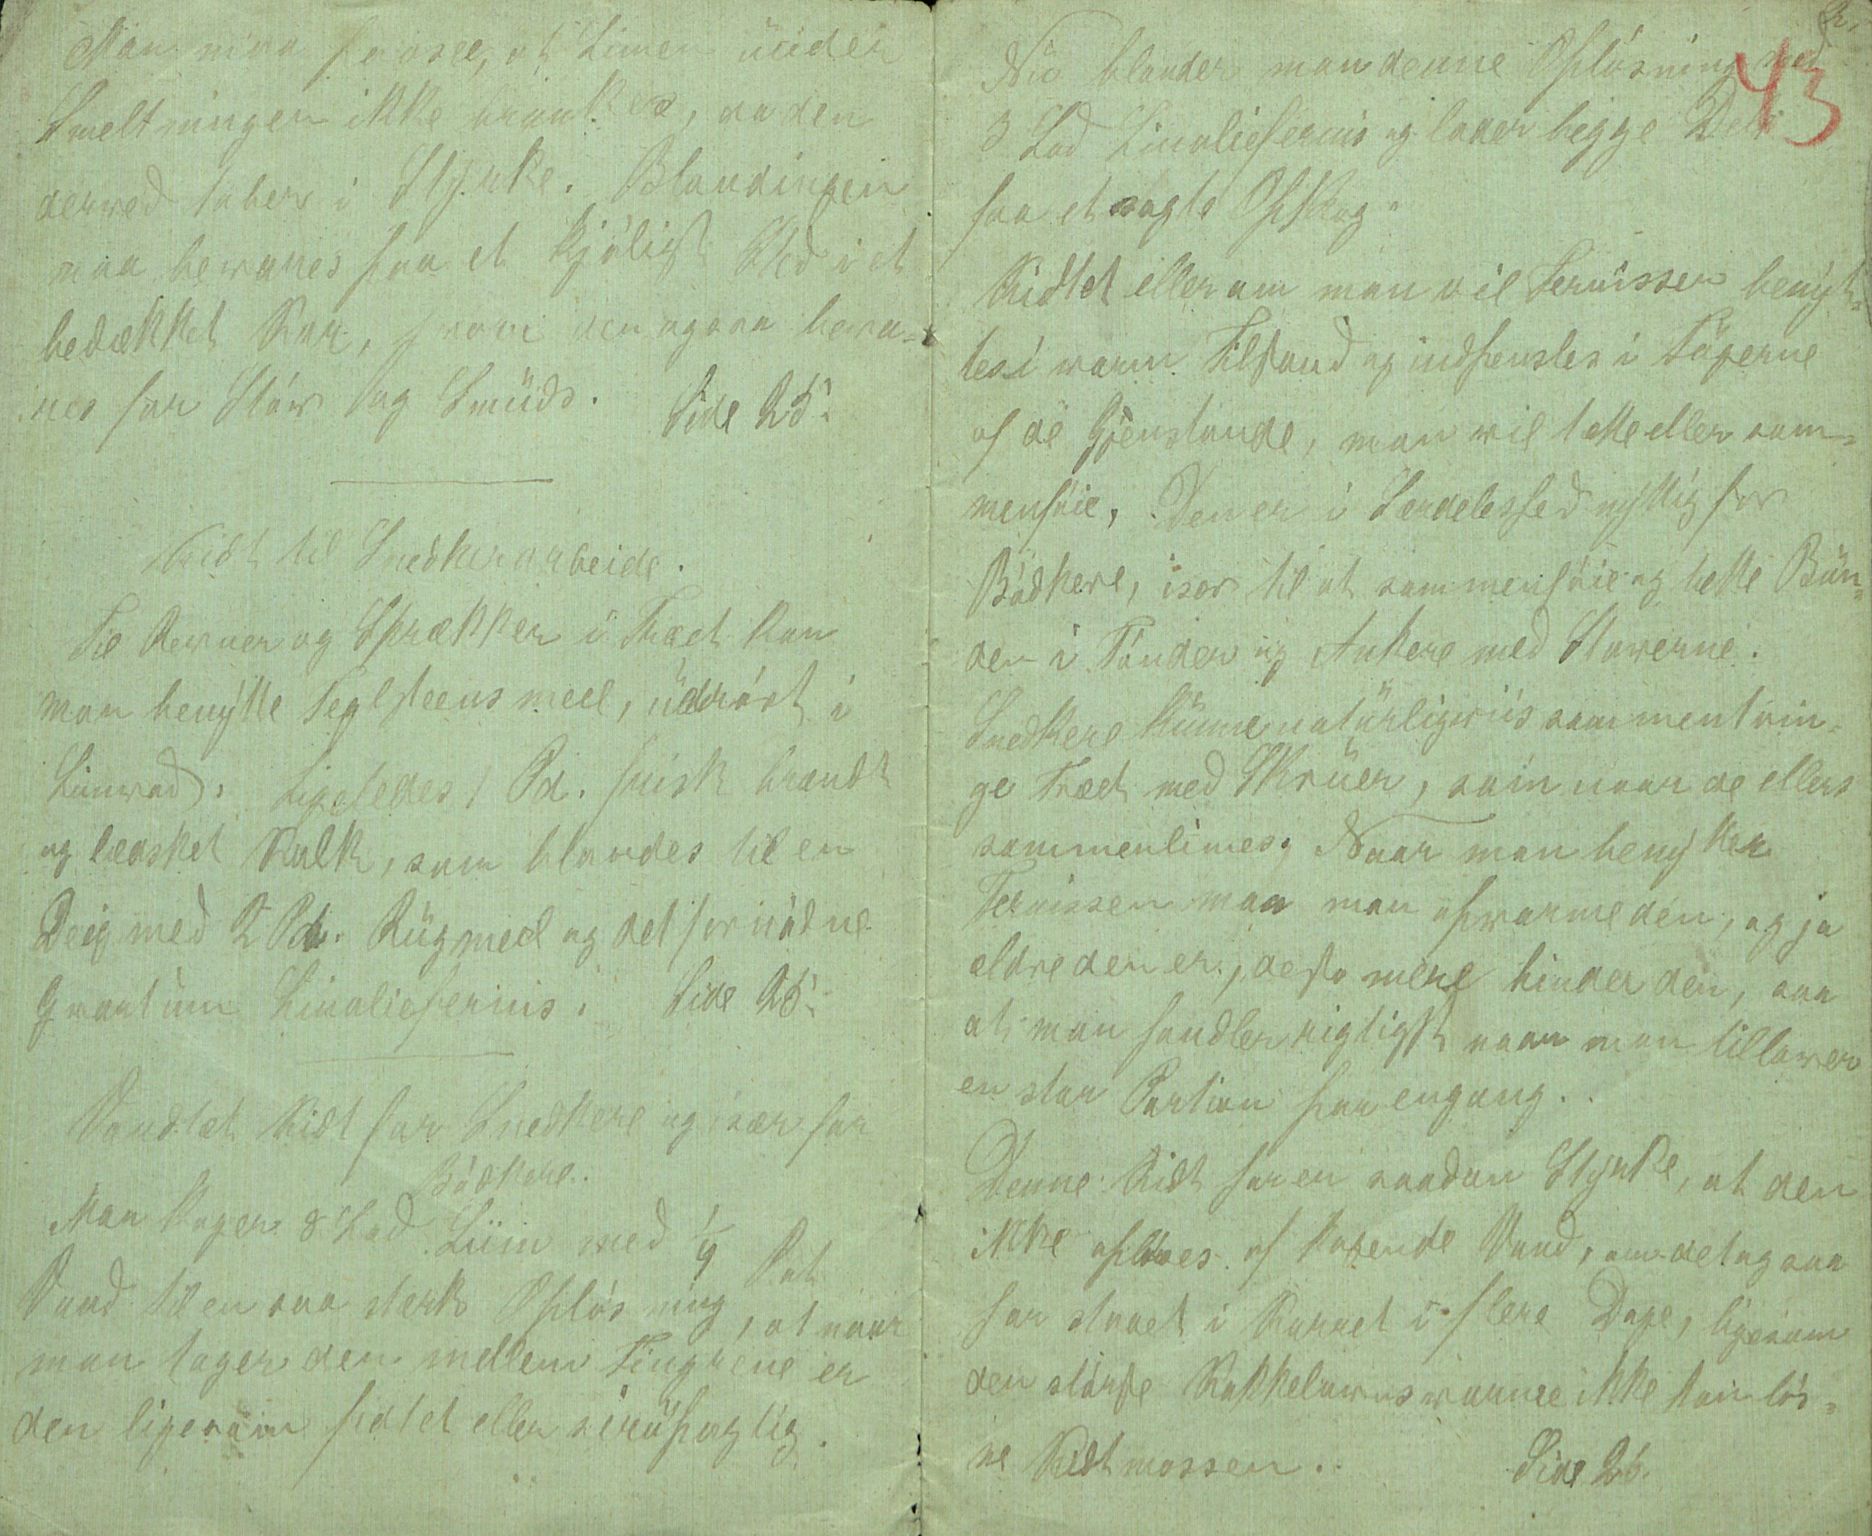 Man maa paasee, at Limen under
Smeltningen ikke brankes, da den
derved taber i Styrke. Blandingen
maa bevares paa et kjöligt Sted i et
bedækket Kar, hvori den ogsaa beva-
res for Stöv og Smuds. Side 25.
Kidt til Snedkerarbeide.
Til Revner og Sprækker i Træet kan
man benytte Teglsteensmeel, udrört i
Limvad. Ligeledes 1 Pd. frisk brændt
og læsket Kalk, som blandes til en
Deig med 2 Pd. Rugmeel og det fornödne
Qvantum Linoliefernis. Side 25.
Vandtæt Kidt for Snedkere og især for
Bödkere.
Man koger 8 Lod Liim med 1/4 Pot
Vand til en saa stærk Oplösning, at naar
man tager den mellem Fingrene er
den ligesom fedtet eller sirupagtig.
2.
43
Nu blander man denne Oplösning med
3 Lod Linoliefernis og lader begge Dele
faa et sagte Opkog.
Kidtet eller om man vil Fernissen benyt-
tes i varm Tilstand og indpensles i Fugerne
af de Gjenstande, man vil tætte eller sam-
menföie. Den er i Særdeleshed nyttig for
Bödkere, især til at sammenföie og tætte Bun-
den i Tönder og Ankere med Staverne.
Snedkere kunne naturligviis sammentvin-
ge Træet med Skruer, som naar de ellers
sammenlimes. Naar man benytter
Fernissen maa man opvarme den, og jo
eldre den er, desto mere binder den, saa
at man handler rigtigst naar man tillaver
en stor Portion paa engang.
Denne Kidt har en saadan Styrke, at den
ikke oplöses af kogende Vand, om det ogsaa
har staaet i Karret i flere Dage, ligesom
den störste Kakkelovnsvarme ikke kan lös-
ne Kidtmassen. Side 26.